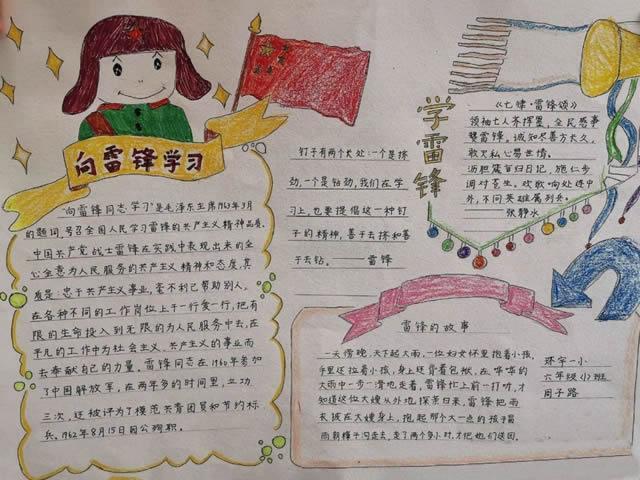 向雷锋学习
"向雷锋同志学习"是毛泽东主席1963年3月
的题词,号召全国人民学习雷锋的共产主义精神品质。
中国共产党战士雷锋在实践中表现出来的全
心全意为人民服务的共产主义精神和态度,其
度是:忠于共产主义事业,毫不利己帮助别人,
在各种不同的工作岗位上干一行爱一行,把有
限的生命投入到无限的为人民服务中去,在
平凡的工作中为社会主义、共产主义的事业而
去奉献自己的力量。雷锋同志在1960年参加
了中国解放军,在两年多的时间里,立功
三次,还被评为了模范共青团员和节约标
兵。1962年8月15日因公殉职。
钉子有两个长处:一个是挤
劲,一个是钻劲,我们在学
习上,也要提倡这一种钉
子的精神,善于去挤和善
于去钻。——雷锋
学雷锋
《七律·雷锋颂》
领袖七人茶择里,全民感事
雙雷锋。诚知尽善方长久,
敢灭私心易世情。
沥胆箴言归日记,施仁步
调对苍生。欢歌响处迷中
外,不问英雄属列丰。
——张静水
雷锋的故事
一天傍晚,天下起大雨,一位妇女怀里抱着小孩,
手里还拉着小孩,身上还背着包袱,在哗哗的
大雨中一步一滑地走着,雷锋忙上前一打听,才
知道这位大嫂从外地探亲归来,雷锋把雨
衣披在大嫂身上,抱起那个大一点的孩子冒
雨朝樟子沟走去,走了两个多小时,才把她们送回。
环宇一小
六年级(2)班
周子路